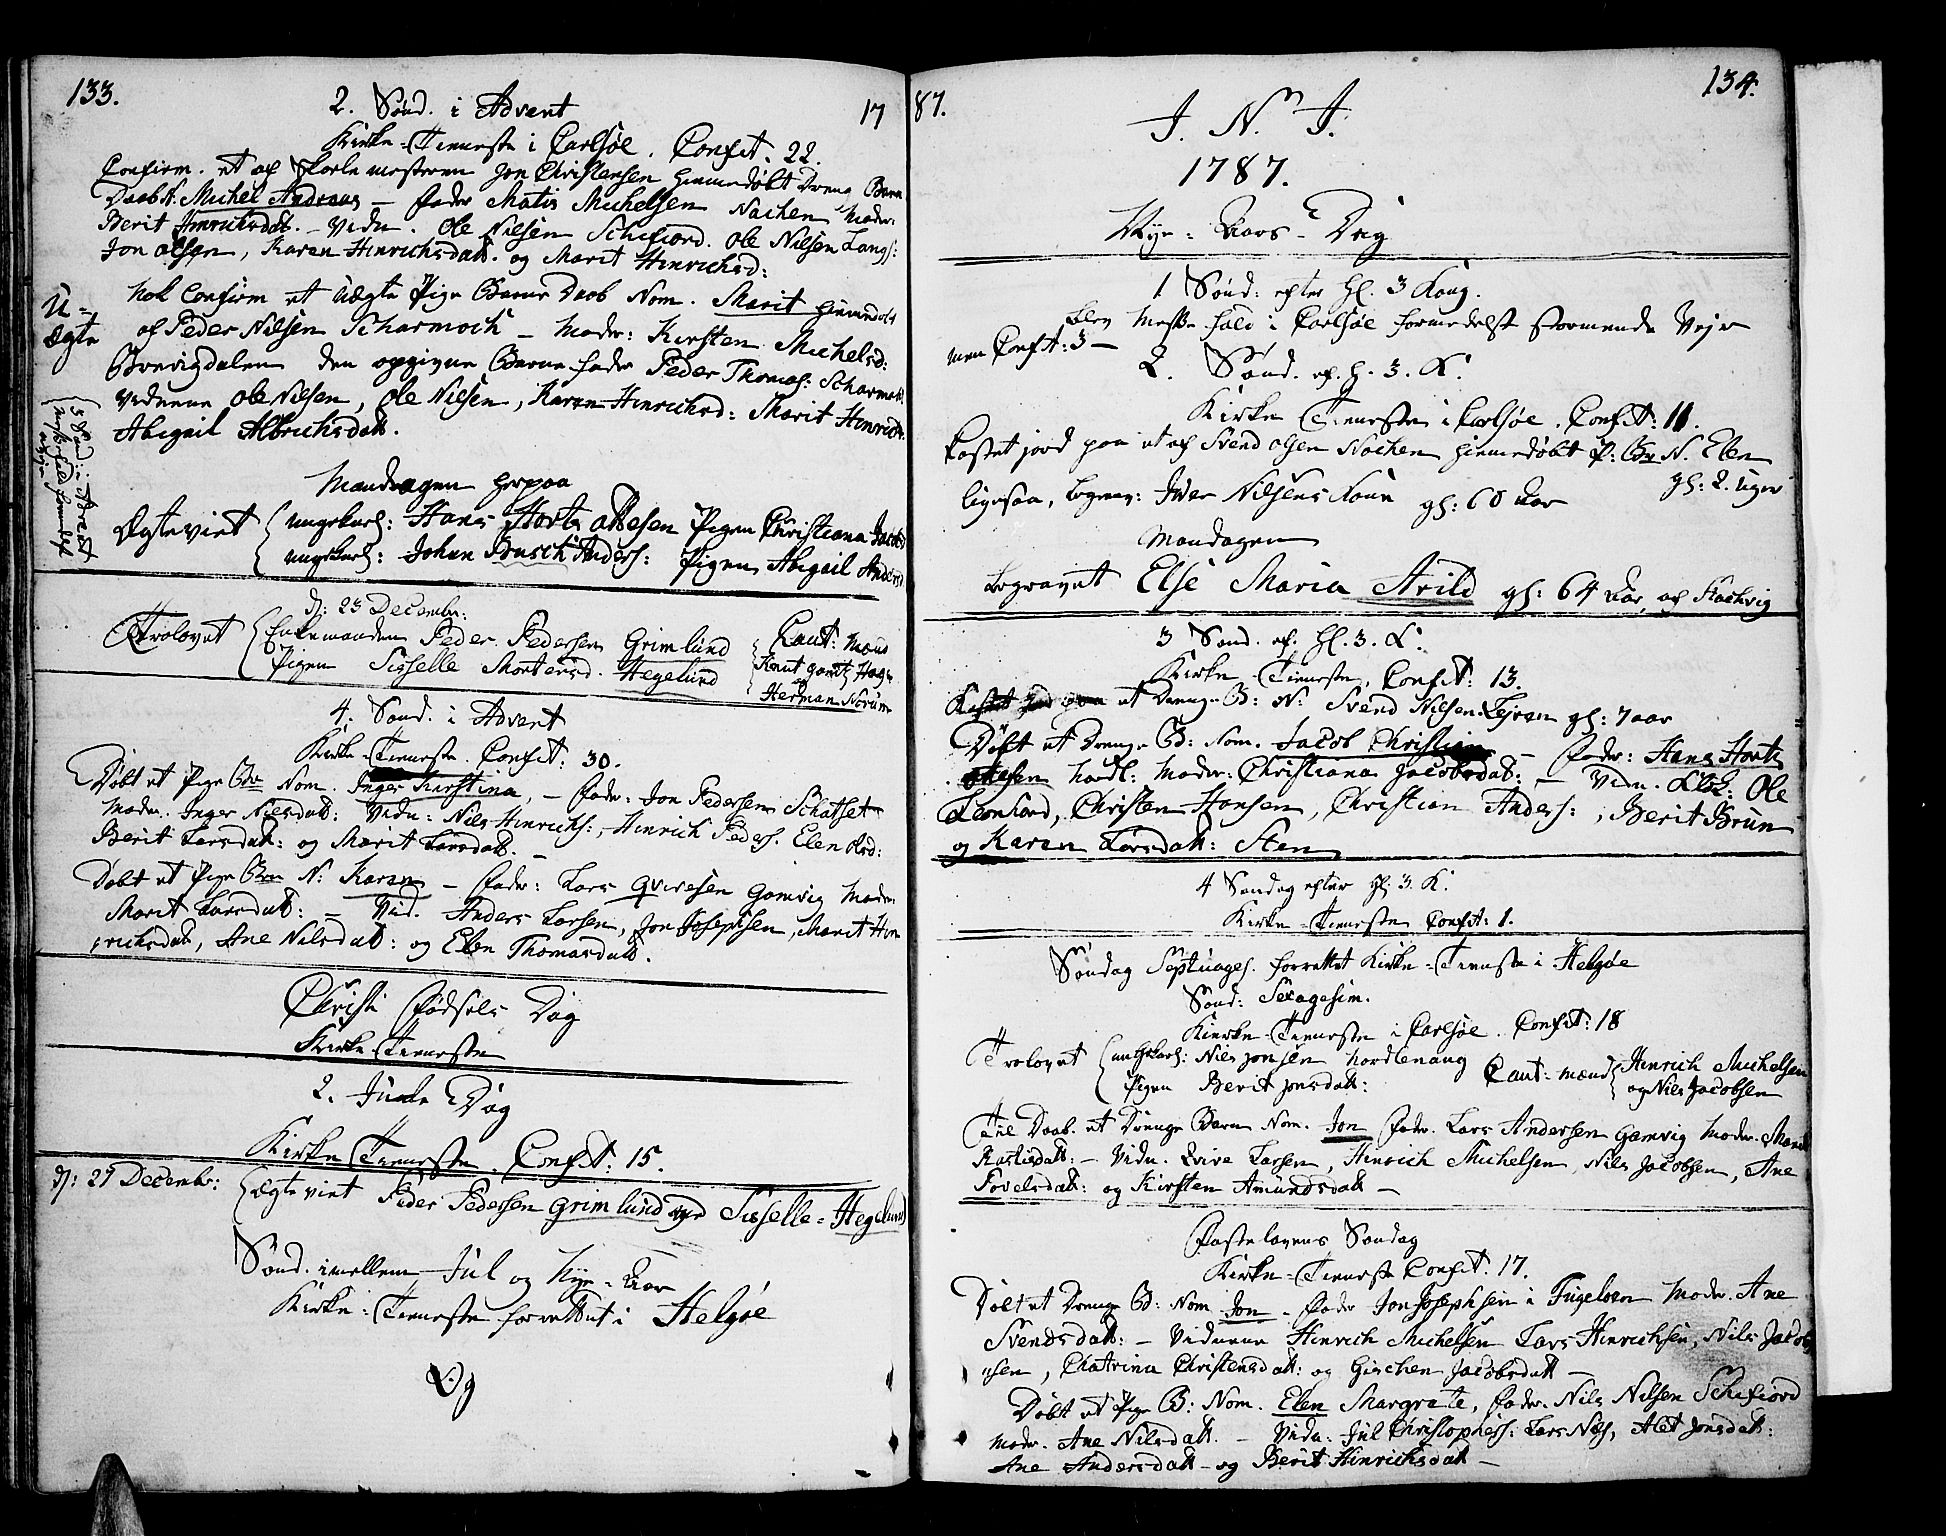 133.
2. Sönd. i Advent
17
Kirke-Tieneste i Carlsöe. Confit: 22.
Confirm. et af Skolemesteren Jon Christensen hiemedöbt Drenge Barn
Daab N. Michel Andreas — Fader Matis Michelsen Nachen Moder:
Berit Hinrichsdat. — Vidn. Ole Nilsen Schifiord. Ole Nilsen Langs:
Jon Olsen, Karen Hinrichsdatt. og Marit Hinrichsd:
U-
ægte
Nok Confirm et Uægte Pige Barns Daab Nom. Marit hiemedöbt
af Peder Nilsen Scharmoch — Moder: Kirsten Michelsd:
den opgivne Barne fader Peder Thomas: Scharmoch
Vidnerne Ole Nilsen, Ole Nilsen, Karen Hinrichsd: Marit Hinrichs
Abigail Albrichsdatt.
3 Sönd: i Advent
Mandagen herpaa
Ægteviet
ungekarl: Hans Hortz Ottesen Pigen Christiana Jacobsd
ungekarl: Johan Busch Anders: Pigen Abigail Andersd
d: 23 Decembr:
Trolovet
Enkemanden Peder Pedersen Grimlund
Pigen Sisselle Mortensd. Hegelund
Caut: Mænd
Herman Norum
4. Sönd. i Advent
Kirke-Tieneste. Confit: 30.
Döbt et Pige Bn Nom. Inger Kirstina, — Fader: Jon Pedersen Schatset
Moder. Inger Nielsdatt: Vidn: Nils Hinrichs:, Hinrich Peders. Elen Olsd:
Berit Larsdatt: og Marit Larsdatt. —
Döbt et Pige Bn N: Karen — Fader: Lars Qvivesen Gamvig Moder
Marit Larsdatt: — Vid. Anders Larsen, Jon Josephsen, Marit Hin
richsdatt, Ane Nilsdatt: og Elen Thomasdatt.
Christi Födsels Dag
Kirke-Tieneste
2. Juele Dag
Kirke Tieneste. Confit: 15.
d: 27 Decembr:
Ægteviet Peder Pedersen Grimlund og Sisselle Hegelund
Sönd. imellem Jul og Nye-Aar
Kirke-Tieneste forrettet i Helgöe
87.
134.
J. N. J.
1787.
Nye-Aars-Dag
1 Sönd: efter Hl. 3 Kong.
blev Messe fald i Carlsöe formedelst stormende Vejr
men Confit: 3 —
2. Sönd. ef. H. 3. K:
Kirke Tieneste i Carlsöe. Confit: 11.
Kastet jord paa et af Svend Olsen Nachen hiemedöbt P: Bn N. Elen
gl: 2. Uger
ligesaa, begrav: Iver Nilsens Kone gl: 60 Aar
Mandagen
begravet Else Maria Arild gl: 64 Aar, af
3 Sönd. ef. Hl. 3. K:
Kirke-Tieneste, Confit: 13.
Kastet Jord paa et Drenge B: N: Svend Nilsen gl: 7 aar
Döbt et Drenge B: Nom. Jacob Christian — Fader: Hans Hortz
Ottesen Moder: Christiana Jacobsdatt: — Vidn. Ole
Leonhard, Christen Hansen, Christian Anders:, Berit Brun
og Karen Larsdatt: Sten
4 Söndag efter Hl. 3. K.
Kirke-Tieneste Confit: 1.
Söndag Septuages. forrettet Kirke-Tieneste i Helgöe
Sönd: Sexagesim.
Kirke-Tieneste i Carlsöe. Confit: 18
Trolovet
ungekarl: Nils Jonsen Nordlenang
Pigen Berit Jonsdatt:
Caut: Mænd
Hinrich Michelsen
og Nils Jacobsen
Til Daab. et Drenge Barn Nom. Jon Fader. Lars Andersen Gamvig Moder.
— Vidn. Qvive Larsen, Hinrich Michelsen, Nils Jacobsen, Ane
Povelsdatt: og Kirsten Amundsdatt —
Fastelavens Söndag
Kirke-Tieneste Confit. 17.
Döbt et Drenge B: Nom. Jon — Fader Jon Josephsen i Fugeløen Moder. Ane
Svendsdatt: — Vidnerne Hinrich Michelsen Lars Hinrichsen, Nils Jacob
sen, Chatrina Christensdatt: og Giæchen Jacobsdatt —
Döbt et Pige B: Nom. Elen Margrete, Fader. Nils Nilsen Schifiord
Moder. Ane Nilsdatt. — Vidn: Jul Christophers: Lars Nils, Alet Jonsdatt:
Ane Andersdatt — og Berit Hinrichsdatt —